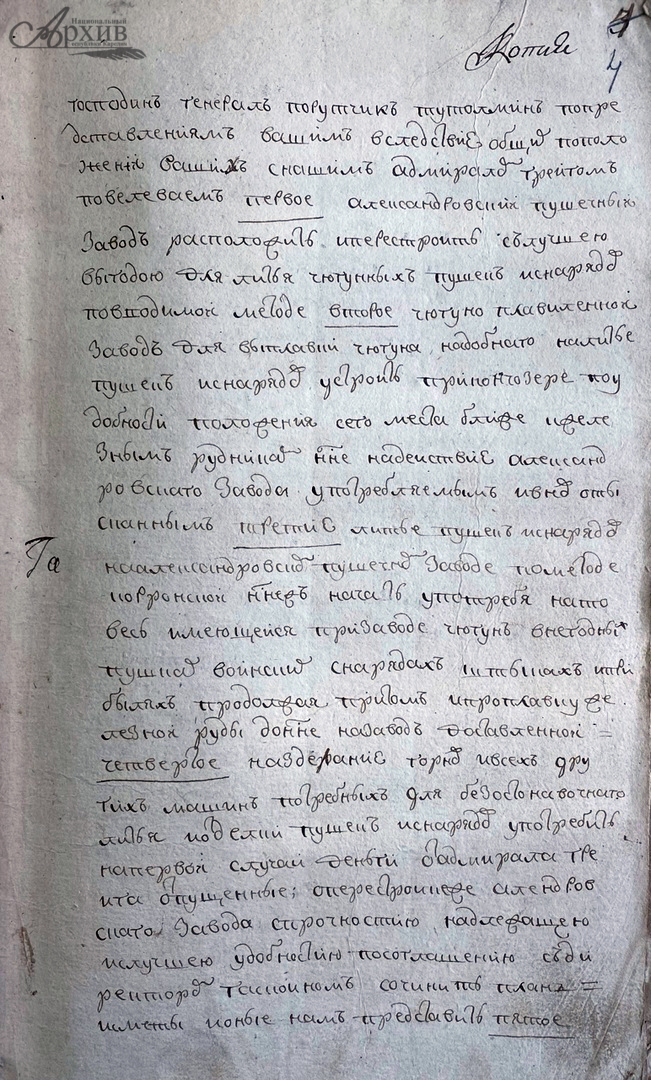 Национальный
Архив
республики Карелия
Копия
4
господинъ генералъ порутчикъ тутолминъ попре
дставлениямъ вашимъ вследствие общих пополо
жений вашихъ снашимъ адмиралом грейгомъ
повелеваемъ первое александровский пушечный
заводъ расположить иперестроить сълучшею
выгодою для литья чюгунныхъ пушекъ иснарядов
повводимой методе второе чюгуно плавиленной
заводъ для выплавки чюгуна надобнаго налитье
пушекъ иснарядов устроить прикончозере поу
добности положения сего места ближе кжеле
знымъ рудникам нне надействие александ
ровскаго завода употребляемымъ ивнов оты
сканнымъ третие литье пушекъ иснарядов
Га
наалександровском пушечном заводе пометоде
корронской ннеже начать употребя нато
весь имеющейся призаводе чюгунъ внегодных
пушках воинских снарядахъ штыкахъ ипри
былях продолжая притомъ ипроплавку же
лезной руды донне назаводъ доставленной =
четвертое наздержание горнов ивсехъ дру
гихъ машинъ потребныхъ для безостановочнаго
литья иоделки пушекъ иснарядов употребить
напервой случай деньги от адмирала гре
ига отпущенные; оперестройкеже алексндров
скаго завода спрочностию надлежащею
илучшею удобностию посоглашению съди
ректором гаскойномъ сочинить планы =
исметы ионые намъ представить пятое